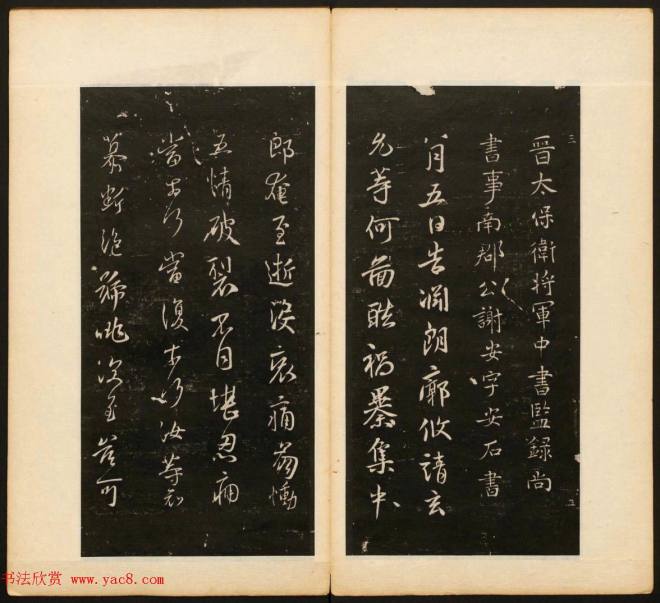 晉太保衛將軍中書監錄尚
書事南郡公謝安字安石書
八月五日告淵朗廓攸靖玄
允等何圖酷禍暴集中
郎奄至逝沒哀痛崩慟
五情破裂不自堪忍痛
當奈何當復奈何汝等哀
慕斷絕號咷深至豈可
书法欣赏 www.yac8.com